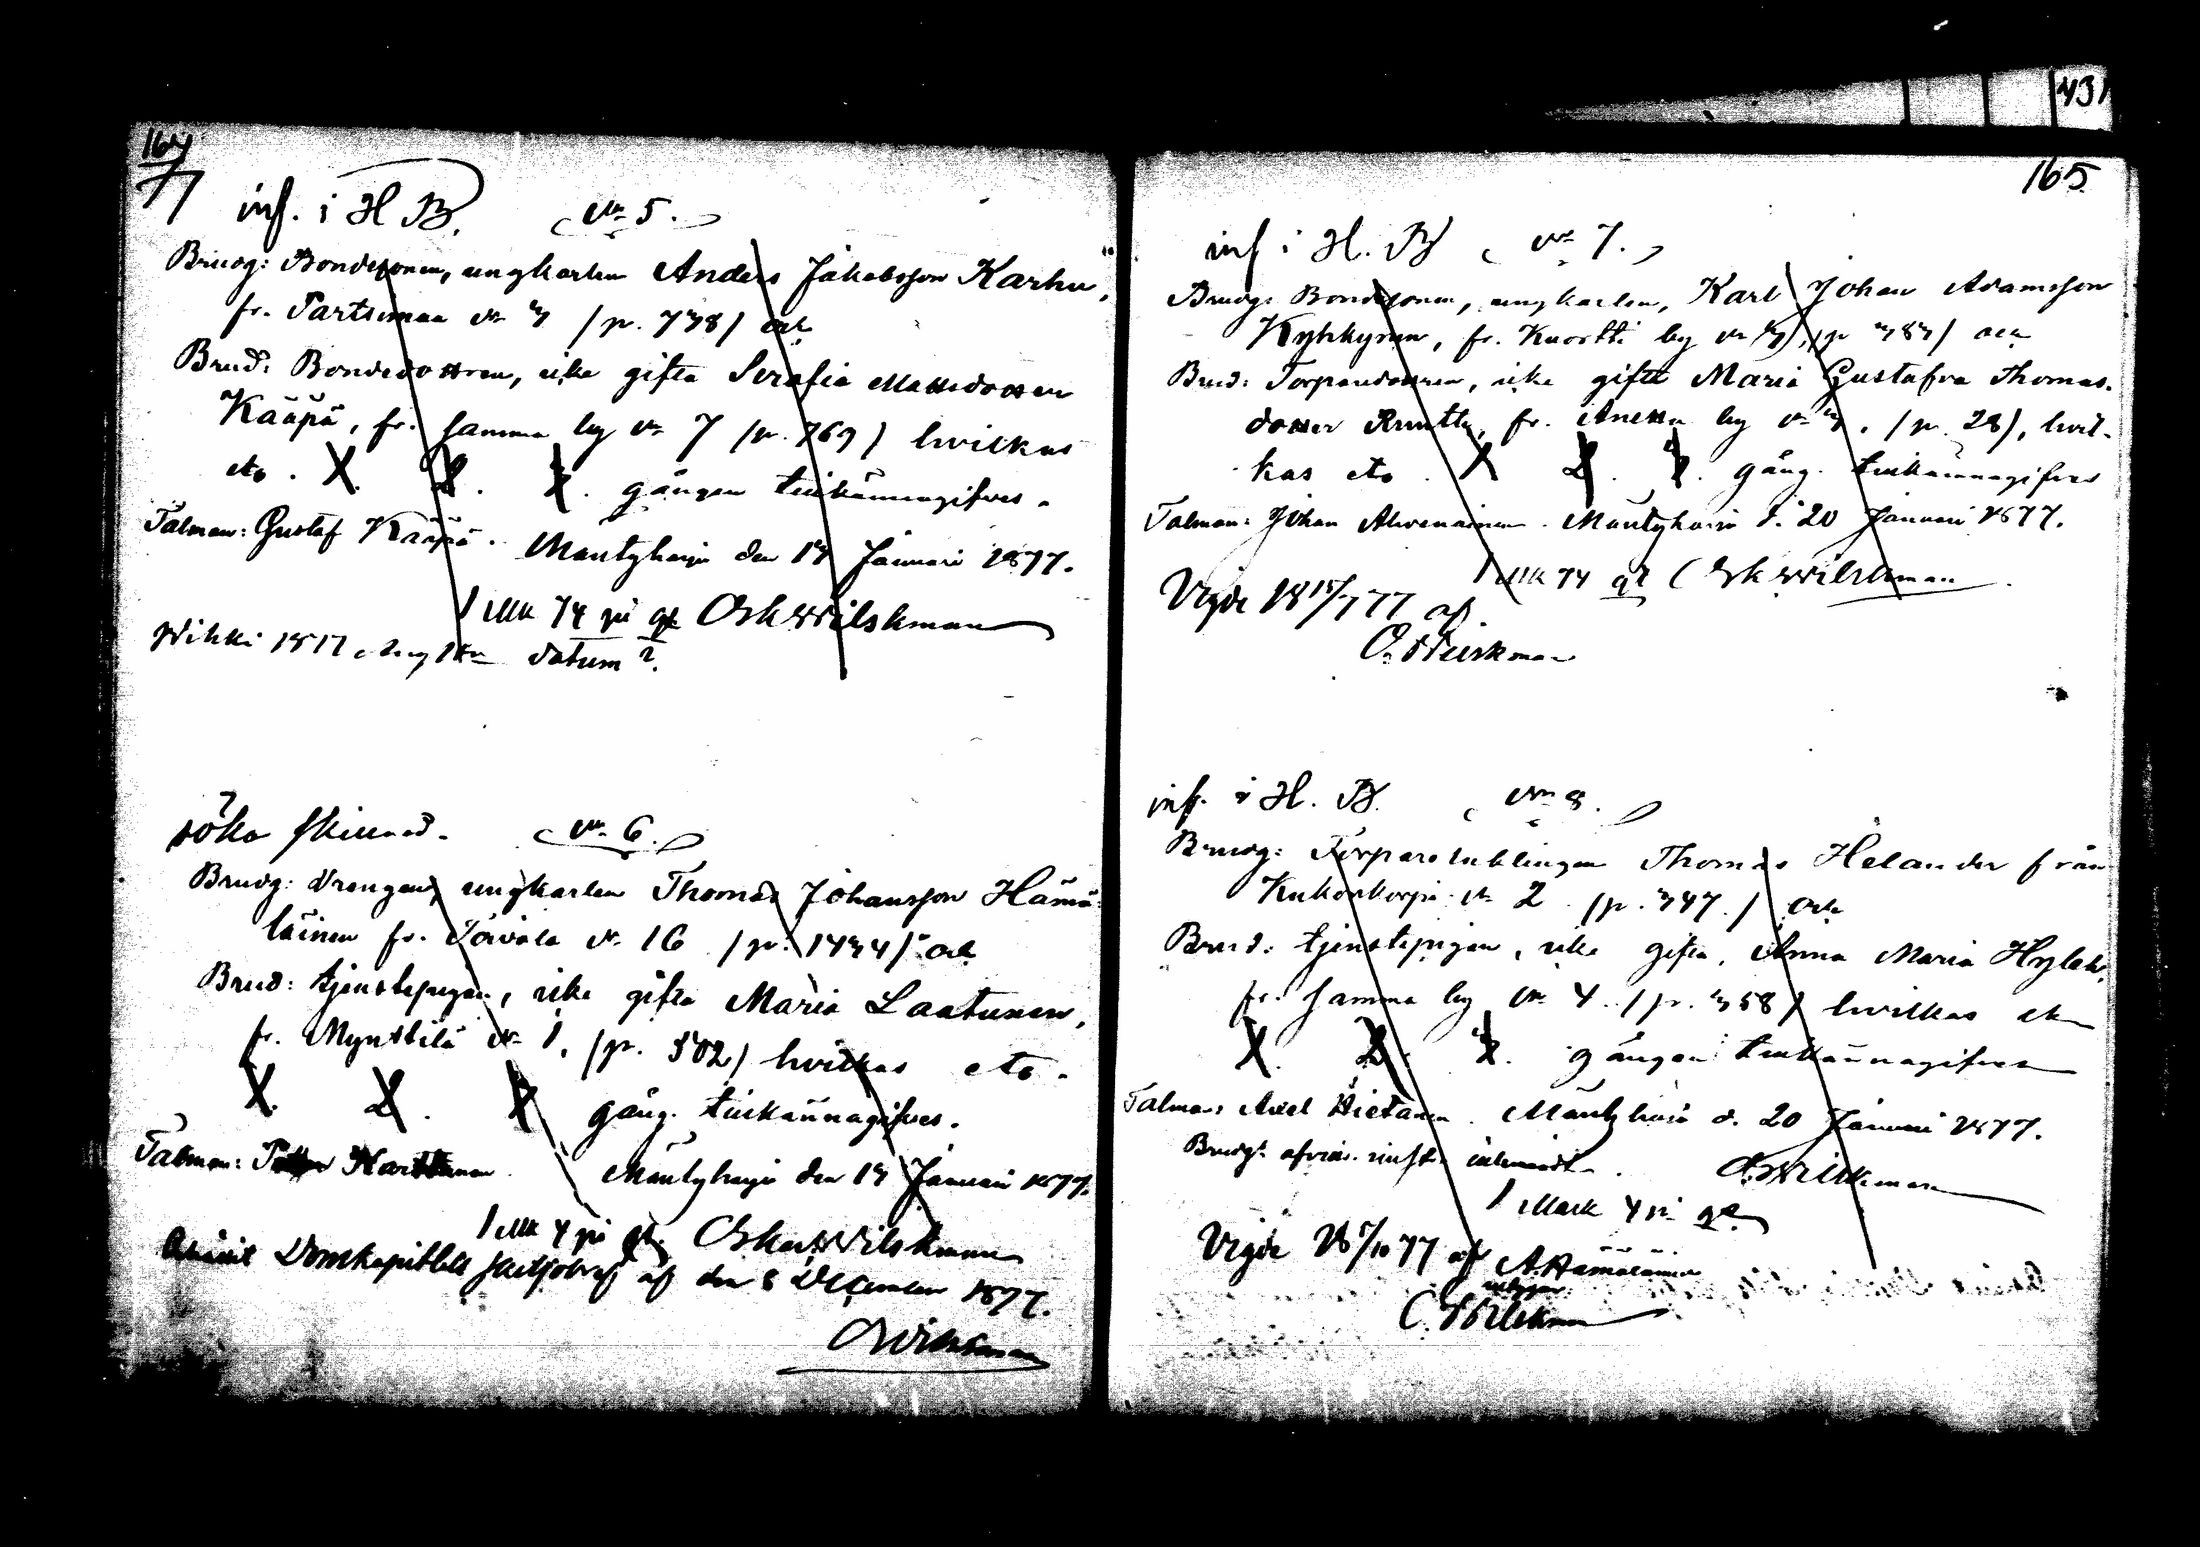 164
77
inf. i H B. № 5.
Brudg: Bondesonen, ungkarlen Anders Jakobsson Karhu,
fr. Partsimaa № 3 /p. 738/ och
Brud: Bondedottren, icke gifta Serafia Mattsdotter
Kääpä, fr. samma by № 7 /p. 769/ hvilkas
etc. 1. 2. 3. gången tillkännagifves.
Talman: Gustaf Kääpä. Mäntyharju den 13 Januari 1877.
1 Mk 74 pi gt Osk Wilskman
datum?
söka skillnad. № 6.
Brudg: drengen, ungkarlen Thomas Johansson Hämä-
läinen fr. Toivola № 16 /p. 1434/ och
Brud: tjenstepigan, icke gifta Maria Laatunen,
fr. Mynttilä № 1, /p. 502/ hvilkas etc.
1. 2. 3. gång. tillkännagifves.
Talman: Karttunen. Mäntyharju den 13 Januari 1877.
1 Mk 4 pi gt. Oskar Wilskman
Domkapitlets skiljobref af den 8 December 1877.
OWilskman
431
165
inf i H. B № 7.
Brudg: Bondesonen, ungkarlen, Karl Johan Adamsson
Kyhkynen, fr. Kuortti by № 3, /p 383/ och
Brud: Torparedottren, icke gifta Maria Gustafva Thomas-
dotter Ruuttu, fr. by № 3, /p. 28/, hvil-
kas etc. 1. 2. 3. gång. tillkännagifves
Talman: Johan Ahvenainen. Mäntyharju d. 20 Januari 1877.
1 Mk 74 gt Osk Wilskman
Vigde 18 15/7 77 af
O. Wilskman
inf. i H. B. № 8.
Brudg: Torpareinhysingen Thomas Helander från
Kukonkorpi № 2 /p. 347./ och
Brud: tjenstepigan, icke gifta, Anna Maria
fr. samma by № 4. /p. 358/ hvilkas etc
1. 2. 3. gången tillkännagifves
Talman: Axel Hietanen. Mäntyharju d. 20 Januari 1877.
Brudg:
O. Wilskman
1 Mark 4 pi gt
Vigde 18 7/10 77 af A. Hämäläinen
O. Wilskman